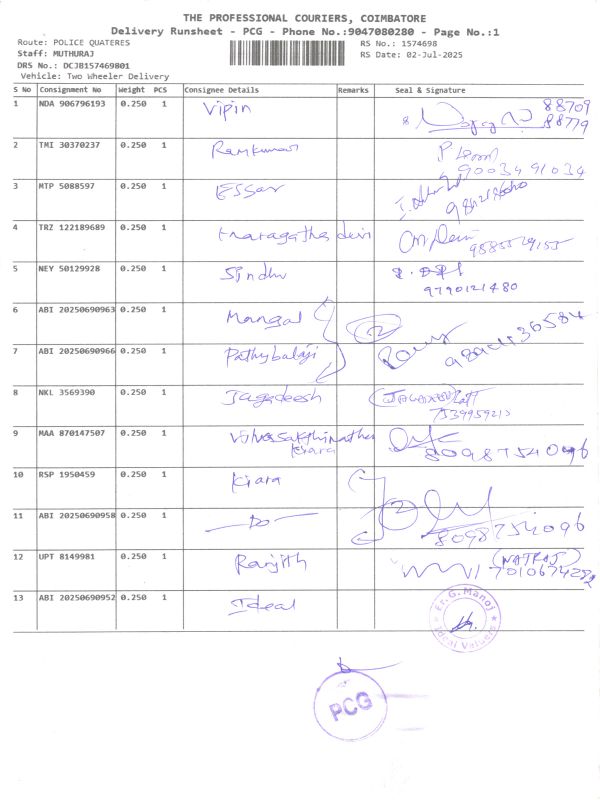 THE PROFESSIONAL COURIERS, COIMBATORE
Delivery Runsheet - PCG - Phone No.:9047080280 - Page No.:1
Route: POLICE QUATERES RS No.: 1574698
Staff: MUTHURAJ RS Date: 02-Jul-2025
DRS No.: DCJB157469801
Vehicle: Two Wheeler Delivery
S No Consignment No Weight PCS Consignee Details Remarks Seal & Signature
1 NDA 906796193 0.250 1 Vipin 88709
88779
2 TMI 30370237 0.250 1 Ramkumar
90034 91034
3 MTP 5088597 0.250 1 Essar
4 TRZ 122189689 0.250 1 Maragatha devi
5 NEY 50129928 0.250 1 Sindhu
9790121480
6 ABI 20250690963 0.250 1 Mangal 2
7 ABI 20250690966 0.250 1 Pathybalaji
8 NKL 3569390 0.250 1 Jagadeesh
7539959210
9 MAA 870147507 0.250 1
Kiara 8098754096
10 RSP 1950459 0.250 1 Kiara
11 ABI 20250690958 0.250 1 Do 2
8098754096
12 UPT 8149981 0.250 1 Ranjith (NATRAJ)
7010674282
13 ABI 20250690952 0.250 1 Ideal Er.G. Manoj
Ideal Valuers
PCG